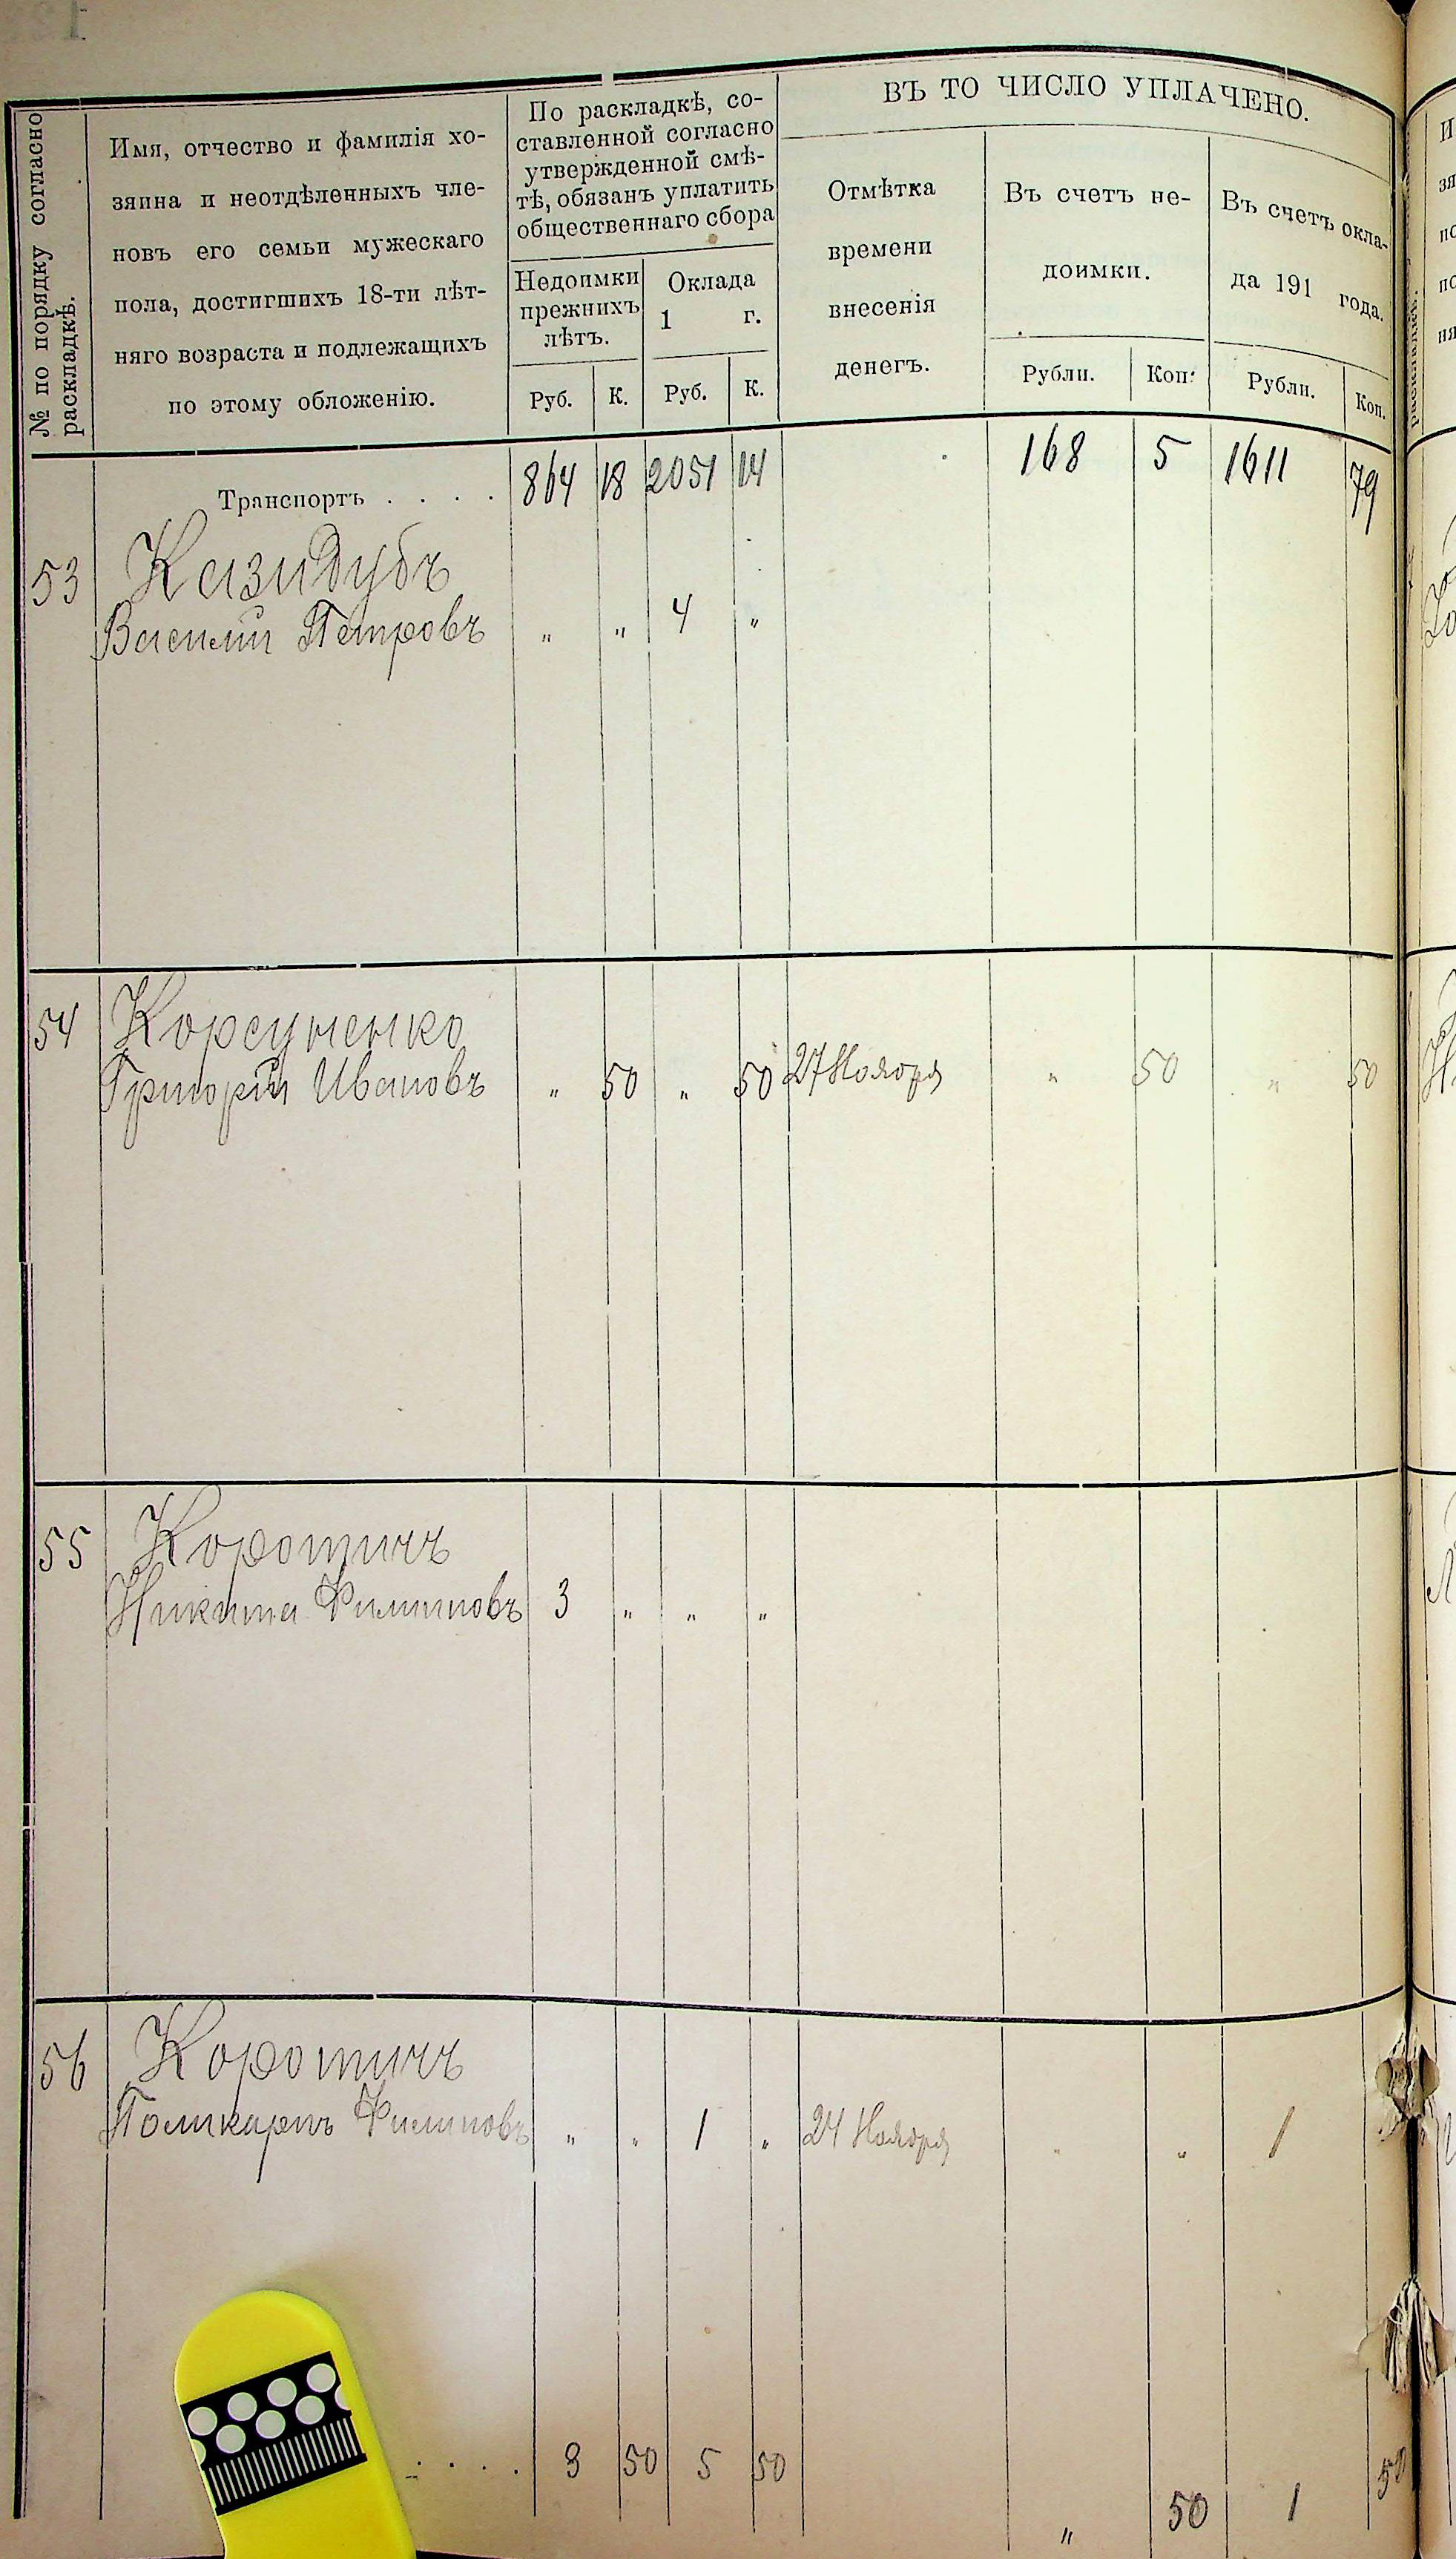 № по порядку согласно
раскладкѣ.
Имя, отчество и фамилія хо-
зяина и неотдѣленныхъ чле-
новъ его семьи мужескаго
пола, достигшихъ 18-ти лѣт-
няго возраста и подлежащихъ
по этому обложенію.
По раскладкѣ, со-
ставленной согласно
утвержденной смѣ-
тѣ, обязанъ уплатить
общественнаго сбора
Недоимки
прежнихъ
лѣтъ.
Оклада
1 г.
Руб. К. Руб. К.
ВЪ ТО ЧИСЛО УПЛАЧЕНО.
Отмѣтка
времени
внесенія
денегъ.
Въ счетъ не-
доимки.
Рубли. Коп.
Въ счетъ окла-
да 191 года.
Рубли. Коп.
Транспортъ . . . . 864 18 2051 14 168 5 1611 79
53 Казидубъ
Василій Петровъ " " 4 "
54 Корсуненко
Григорій Ивановъ " 50 " 50 27 Ноября " 50 " 50
55 Коротичъ
Никита Филиповъ 3 " " "
56 Коротичъ
Поликарпъ Филиповъ " " 1 " 24 Ноября " " 1
. . . . 3 50 5 50 " 50 1 50